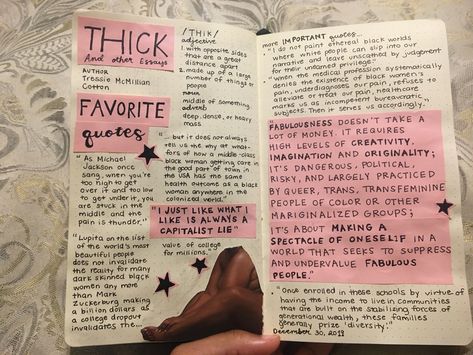 THICK
And other Essays
AUTHOR
Tressie McMillian
Cotton
FAVORITE
quotes
"As Michael
Jackson once
sang, when you're
too high to get
over it and too low
to get under it, you
are stuck in the
middle and the
pain is thunder."
"Lupita on the list
of the world's most
beautiful people
does not invalidate
the reality for many
dark skinned black
women any more
than Mark
Zuckerburg making
a billion dollars as
a college dropout
invalidates the...
/THik/
adjective
1. with opposite sides
that are a great
distance apart
2. made up of a large
number of things or
people
noun
middle of something
adverb
deep, dense, or heavy
mass
"... but it does not always
tell us the why at what-
fors of how a middle-class
black woman getting care in
the good part of town in
the USA has the same
health outcome as a black
woman anywhere in the
colonized world."
"I JUST LIKE WHAT I
LIKE IS ALWAYS A
CAPITALIST LIE"
value of college
for millions."
more IMPORTANT quotes...
"I do not paint ethereal black worlds
where white people can slip into our
narrative and leave unscathed by judgment
for their unearned privilege"
"when the medical profession systematically
denies the existence of black women's
pain, underdiagnoses our pain, refuses to
alleviate or treat our pain, healthcare
marks us as incompetent bureaucratic
subjects. Then it serves us accordingly."
"FABULOUSNESS DOESN'T TAKE A
LOT OF MONEY. IT REQUIRES
HIGH LEVELS OF CREATIVITY,
IMAGINATION AND ORIGINALITY;
IT'S DANGEROUS, POLITICAL,
RISKY, AND LARGELY PRACTICED
BY QUEER, TRANS, TRANSFEMININE
PEOPLE OF COLOR OR OTHER
MARGINIALIZED GROUPS;
IT'S ABOUT MAKING A
SPECTACLE OF ONESELF IN A
WORLD THAT SEEKS TO SUPPRESS
AND UNDERVALUE FABULOUS
PEOPLE."
"Once enrolled in these schools by virtue of
having the income to live in communities
that are built on the stabilizing forces of
generational wealth, these families
generally prize 'diversity.'"
December 30, 2019